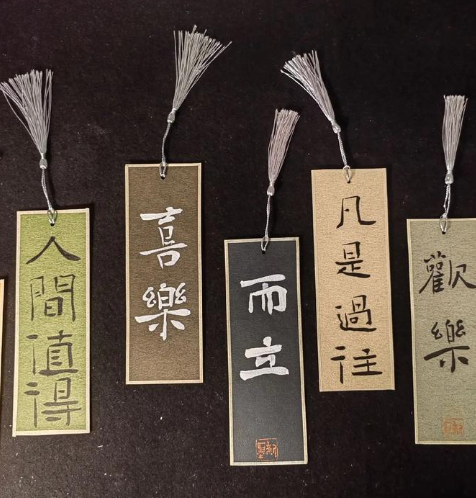 人間值得
喜樂
而立
凡是過往
歡樂